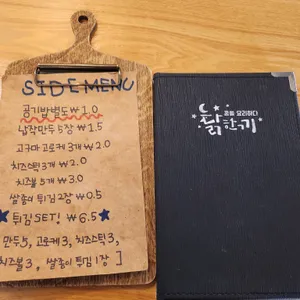 SIDE MENU
공기밥별도 ₩1.0
납작만두 5장 ₩1.5
고구마고로케 3개 ₩2.0
치즈스틱 3개 ₩2.0
치즈볼 5개 ₩3.0
쌀종이 튀김 2장 ₩0.5
★튀김SET! ₩6.5★
만두5, 고로케3, 치즈스틱3,
치즈볼3, 쌀종이 튀김 1장 ]
꿈을 요리하다
닭한끼